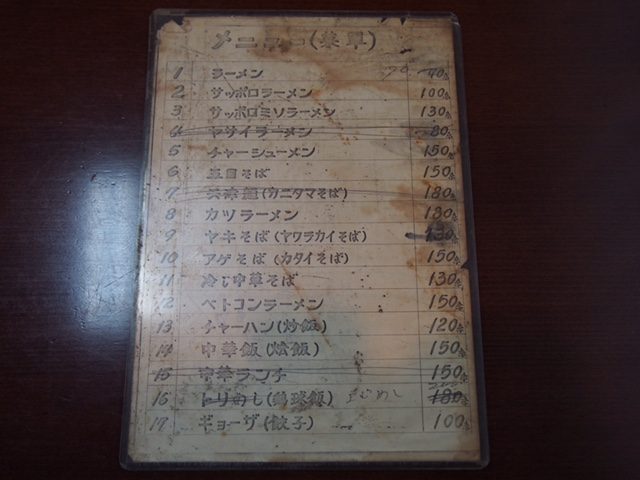 メニユー(菜單)
1 ラーメン 70 90余
2 サッポロラーメン 100余
3 サッポロミソラーメン 130余
4 ヤサイラーメン 80余
5 チャーシューメン 150余
6 五目そば 150余
7 天津麺(カニタマそば) 180余
8 カツラーメン 180余
9 ヤキそば(ヤワラカイそば) 130余
10 アゲそば(カタイそば) 150余
11 冷し中華そば 130余
12 ベトコンラーメン 150余
13 チャーハン(炒飯) 120余
14 中華飯(燴飯) 150余
15 中華ランチ 150余
16 トリめし(鶏球飯) 180余
17 ギョーザ(餃子) 100余